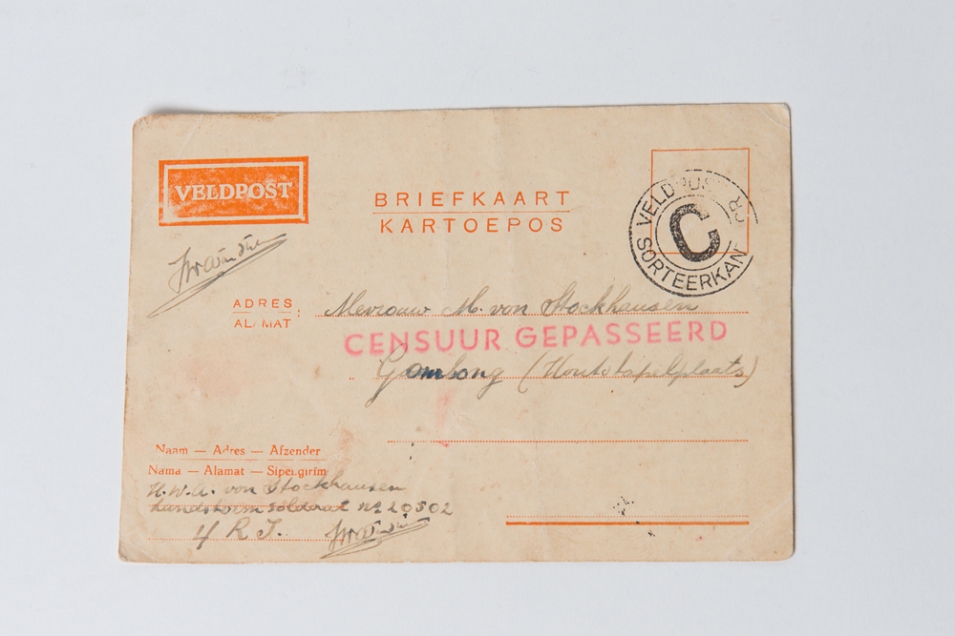 VELDPOST
BRIEFKAART
KARTOEPOS
VELDPOST
C
SORTEERKAN
ADRES :
ALAMAT
Mevrouw M. von Stockhausen
CENSUUR GEPASSEERD
Gombong (Houtstapelplaats)
Naam — Adres — Afzender
Nama — Alamat — Sipengirim
H.W.A. von Stockhausen
Landstormsoldaat no 20502
4 R I.